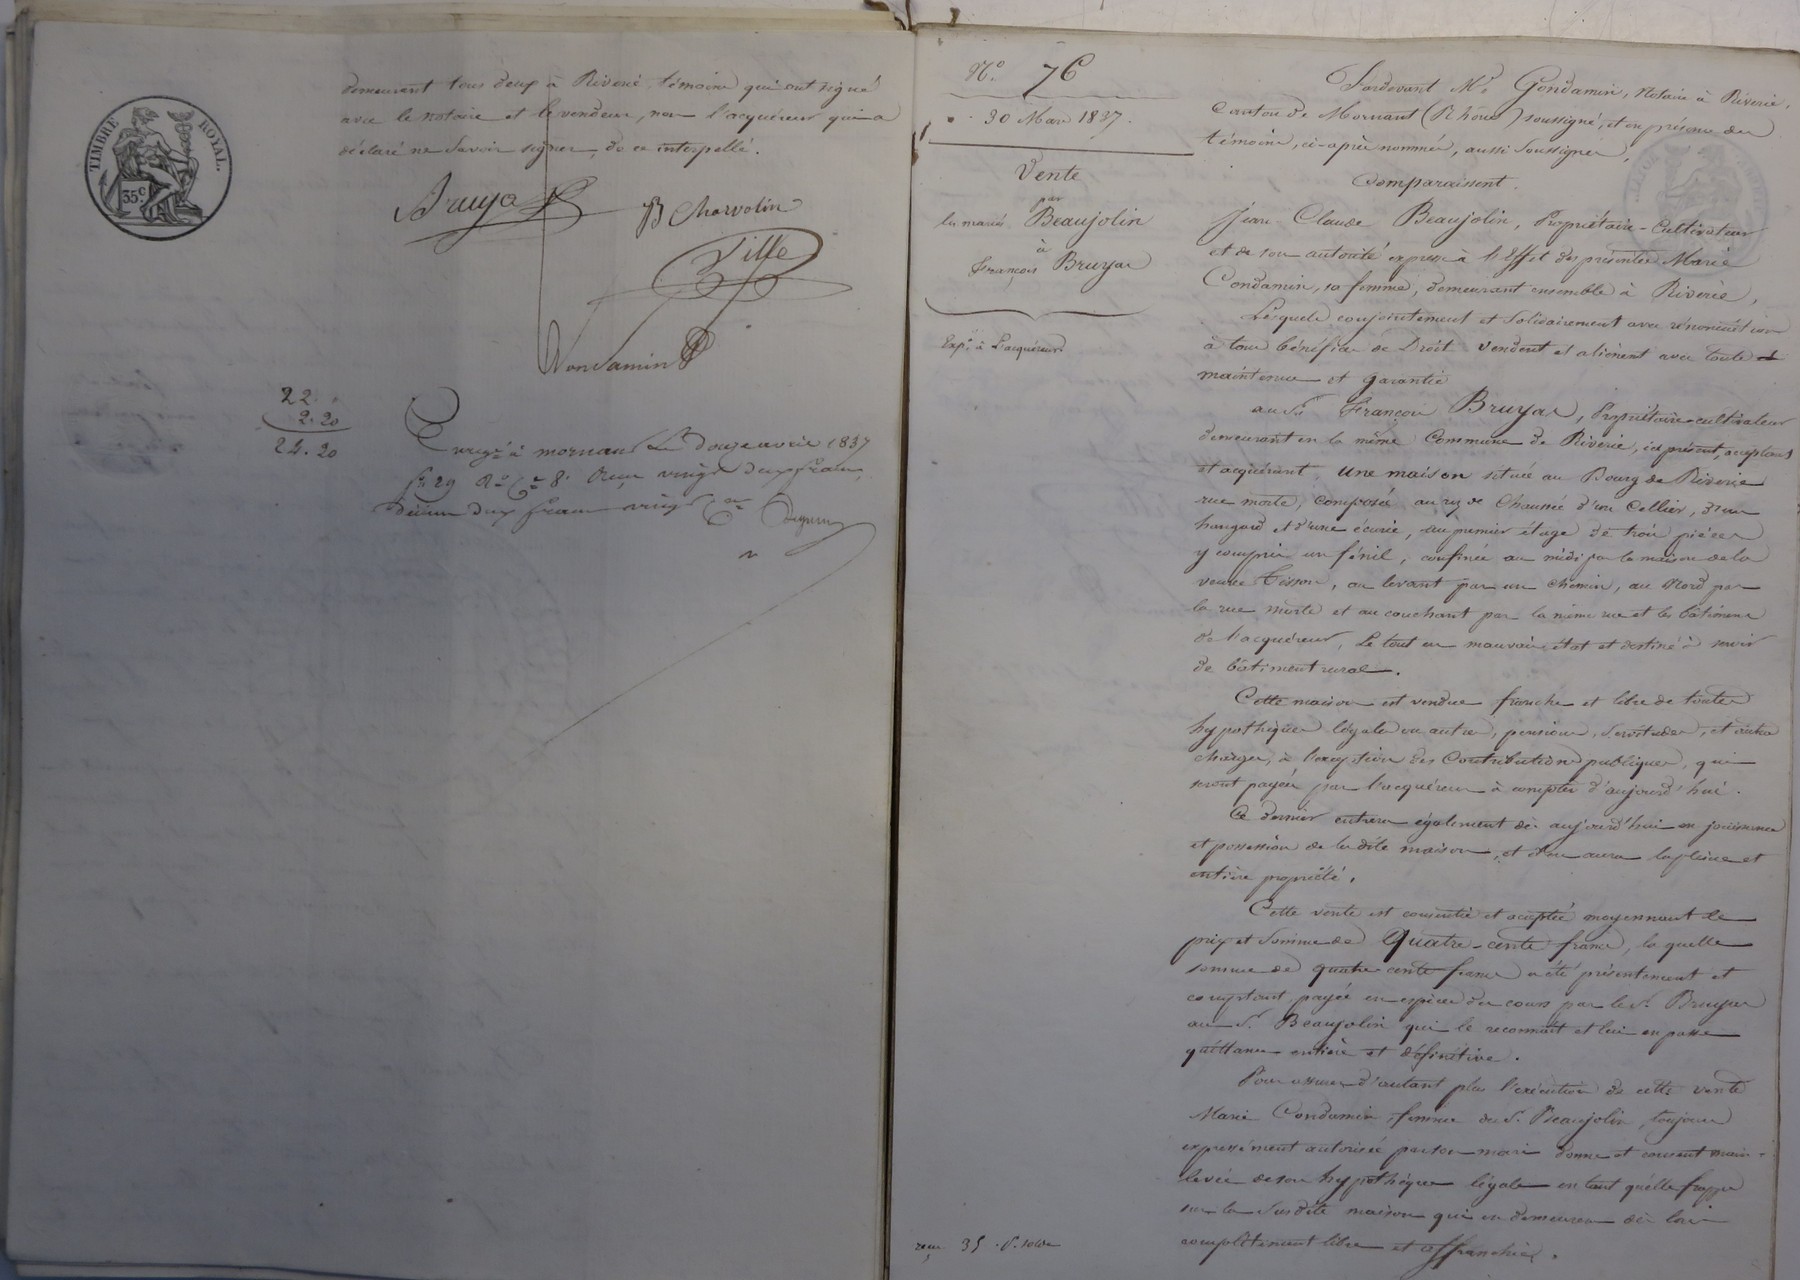 TIMBRE ROYAL.
35c.
demeurant tous deux à Riverie, témoins qui ont signé
avec le notaire et le vendeur, non l'acquéreur qui a
déclaré ne savoir signer, de ce interpellé.
Bruyas
B Charvolin
Ville
Condamin
22
2.20
24.20
Enregé à Mornant le douze avril 1837
fo 29 Ro Ce 8. Reçu vingt deux francs,
décime deux francs vingt Ces
No. 76
30 Mars 1837.
Vente
par
les mariés Beaujolin
à
François Bruyas
Expon à l'acquéreur
reçu 35 f. solde
Pardevant Me Condamin, Notaire à Riverie,
Canton de Mornant (Rhône) soussigné, et en présence des
témoins, ci-après nommés, aussi soussignés,
Comparaissent.
Jean Claude Beaujolin, Propriétaire-Cultivateur
et de son autorité expresse à l'effet des présentes Marie
Condamin, sa femme, demeurant ensemble à Riverie,
Lesquels conjointement et solidairement avec renonciation
à tous bénéfices de Droit vendent et aliènent avec toute
maintenue et garantie
au Sr François Bruyas, Propriétaire-cultivateur
demeurant en la même Commune de Riverie, ici présent, acceptant
et acquérant, une maison située au Bourg de Riverie
rue morte, composée au rez de Chaussée d'un Cellier, d'un
hangard et d'une écurie, au premier étage de trois pièces
y compris un fénil, confinée au midi par la maison de la
veuve Tisson, au levant par un chemin, au Nord par
la rue morte et au couchant par la même rue et les bâtiments
de l'acquéreur, Le tout en mauvais état et destiné à servir
de bâtiment rural.
Cette maison est vendue franche et libre de toutes
hypothèques légales ou autres, pensions, servitudes, et autres
charges, à l'exception des Contributions publiques, qui
seront payées par l'acquéreur à compter d'aujourd'hui.
Ce dernier entrera également dès aujourd'hui en jouissance
et possession de la dite maison, et en aura la pleine et
entière propriété.
Cette vente est consentie et acceptée moyennant le
prix et somme de Quatre-cents francs, la quelle
somme de quatre cents francs a été présentement et
comptant payée en espèces du cours par le Sr Bruyas
au Sr Beaujolin qui le reconnait et lui en passe
quittance entière et définitive.
Pour assurer d'autant plus l'exécution de cette vente
Marie Condamin, femme du Sr Beaujolin, toujours
expressément autorisée par son mari donne et consent main-
levée de son hypothèque légale en tant qu'elle frappe
sur la susdite maison qui en demeurera dès lors
complètement libre et affranchie.